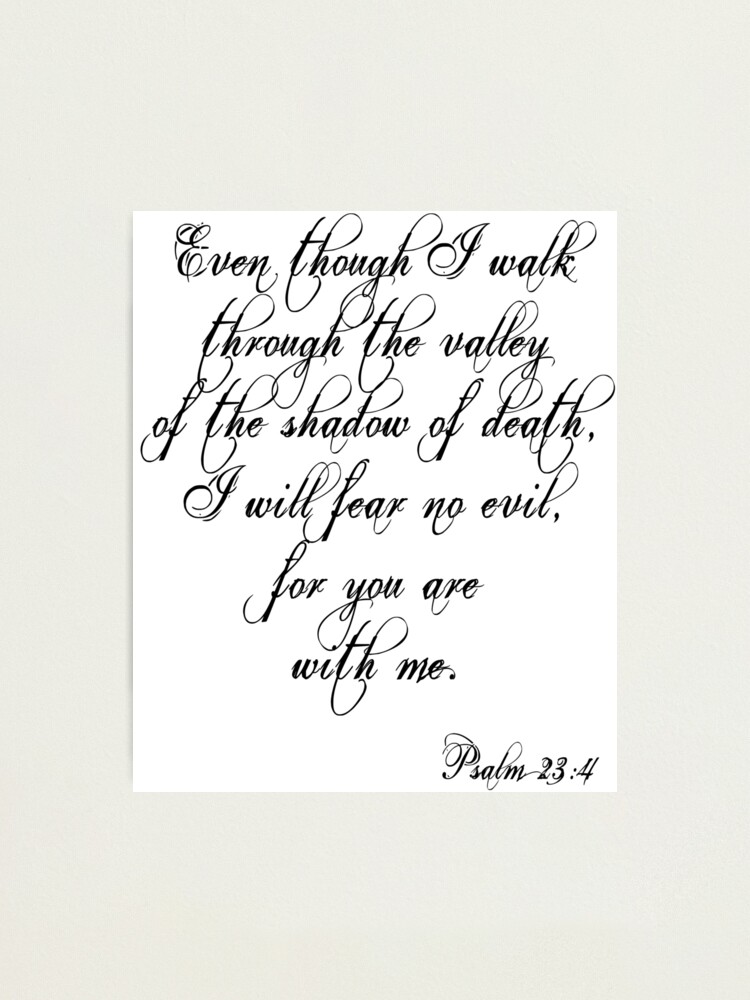 Even though I walk
through the valley
of the shadow of death,
I will fear no evil,
for you are
with me.
Psalm 23:4